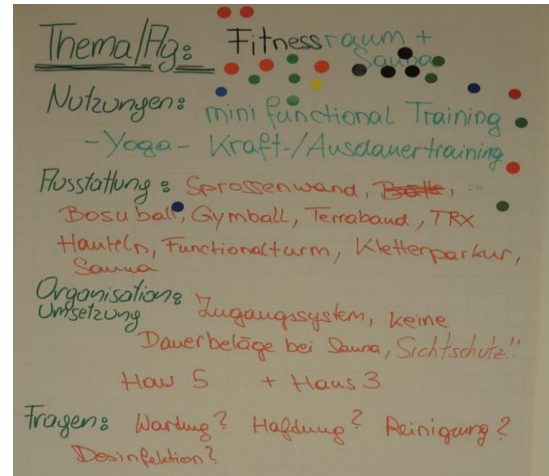 Thema/Ag: Fitnessraum +
Sauna
Nutzungen: mini functional Training
- Yoga - Kraft-/Ausdauertraining
Ausstattung: Sprossenwand, Bälle,
Bosuball, Gymball, Terraband, TRX
Hanteln, Functionalturm, Kletterparkur,
Sauna
Organisation: Zugangssystem, keine
Umsetzung
Dauerbeläge bei Sauna, Sichtschutz!!
Haus 5 + Haus 3
Fragen: Wartung? Haftung? Reinigung?
Desinfektion?